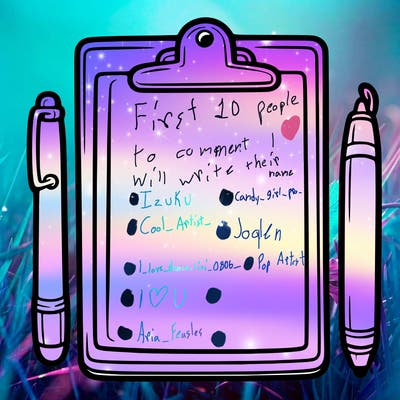 First 10 people
to comment I
will write their
name
Izuku
Candy_girl_po_
Cool_Artist_
Joglen
Pop Artist
I ♡ U
Aria_Feusles